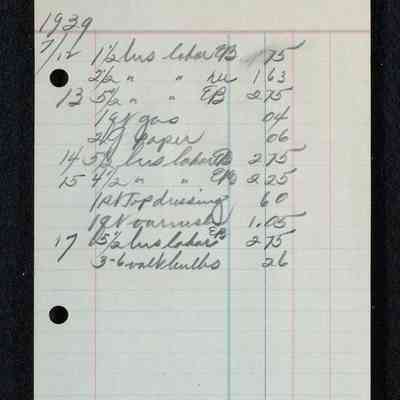 1939
7/12 1½ hrs labor EB 75
2½ " " 1 63
13 5½ " " EB 2 75
1 qt gas 04
paper 06
14 5½ hrs labor EB 2 75
15 4½ " " EB 2 25
1 pt Top dressing 60
1 qt varnish 1.05
17 5½ hrs labor EB 2 75
3-6 volt bulbs 26